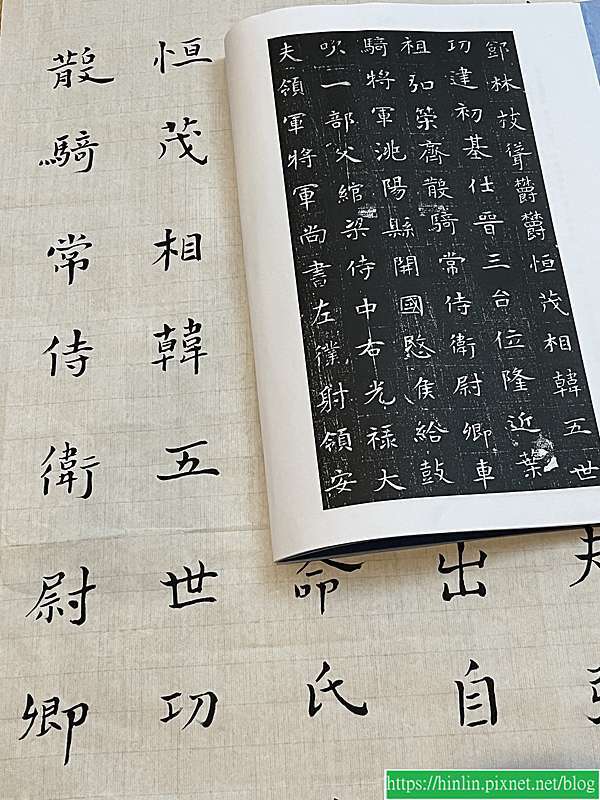 鄧林枝聳欝欝恒茂相韓五世
功建初基仕晉三台位隆近葉
祖弘策齊散騎常侍衛尉卿車
騎將軍洮陽縣開國愍侯給鼓
吹一部父綰梁侍中右光祿大
夫領軍將軍尚書左僕射領安
出自
命氏
恒茂相韓五世功
散騎常侍衛尉卿
https://hinlin.pixnet.net/blog